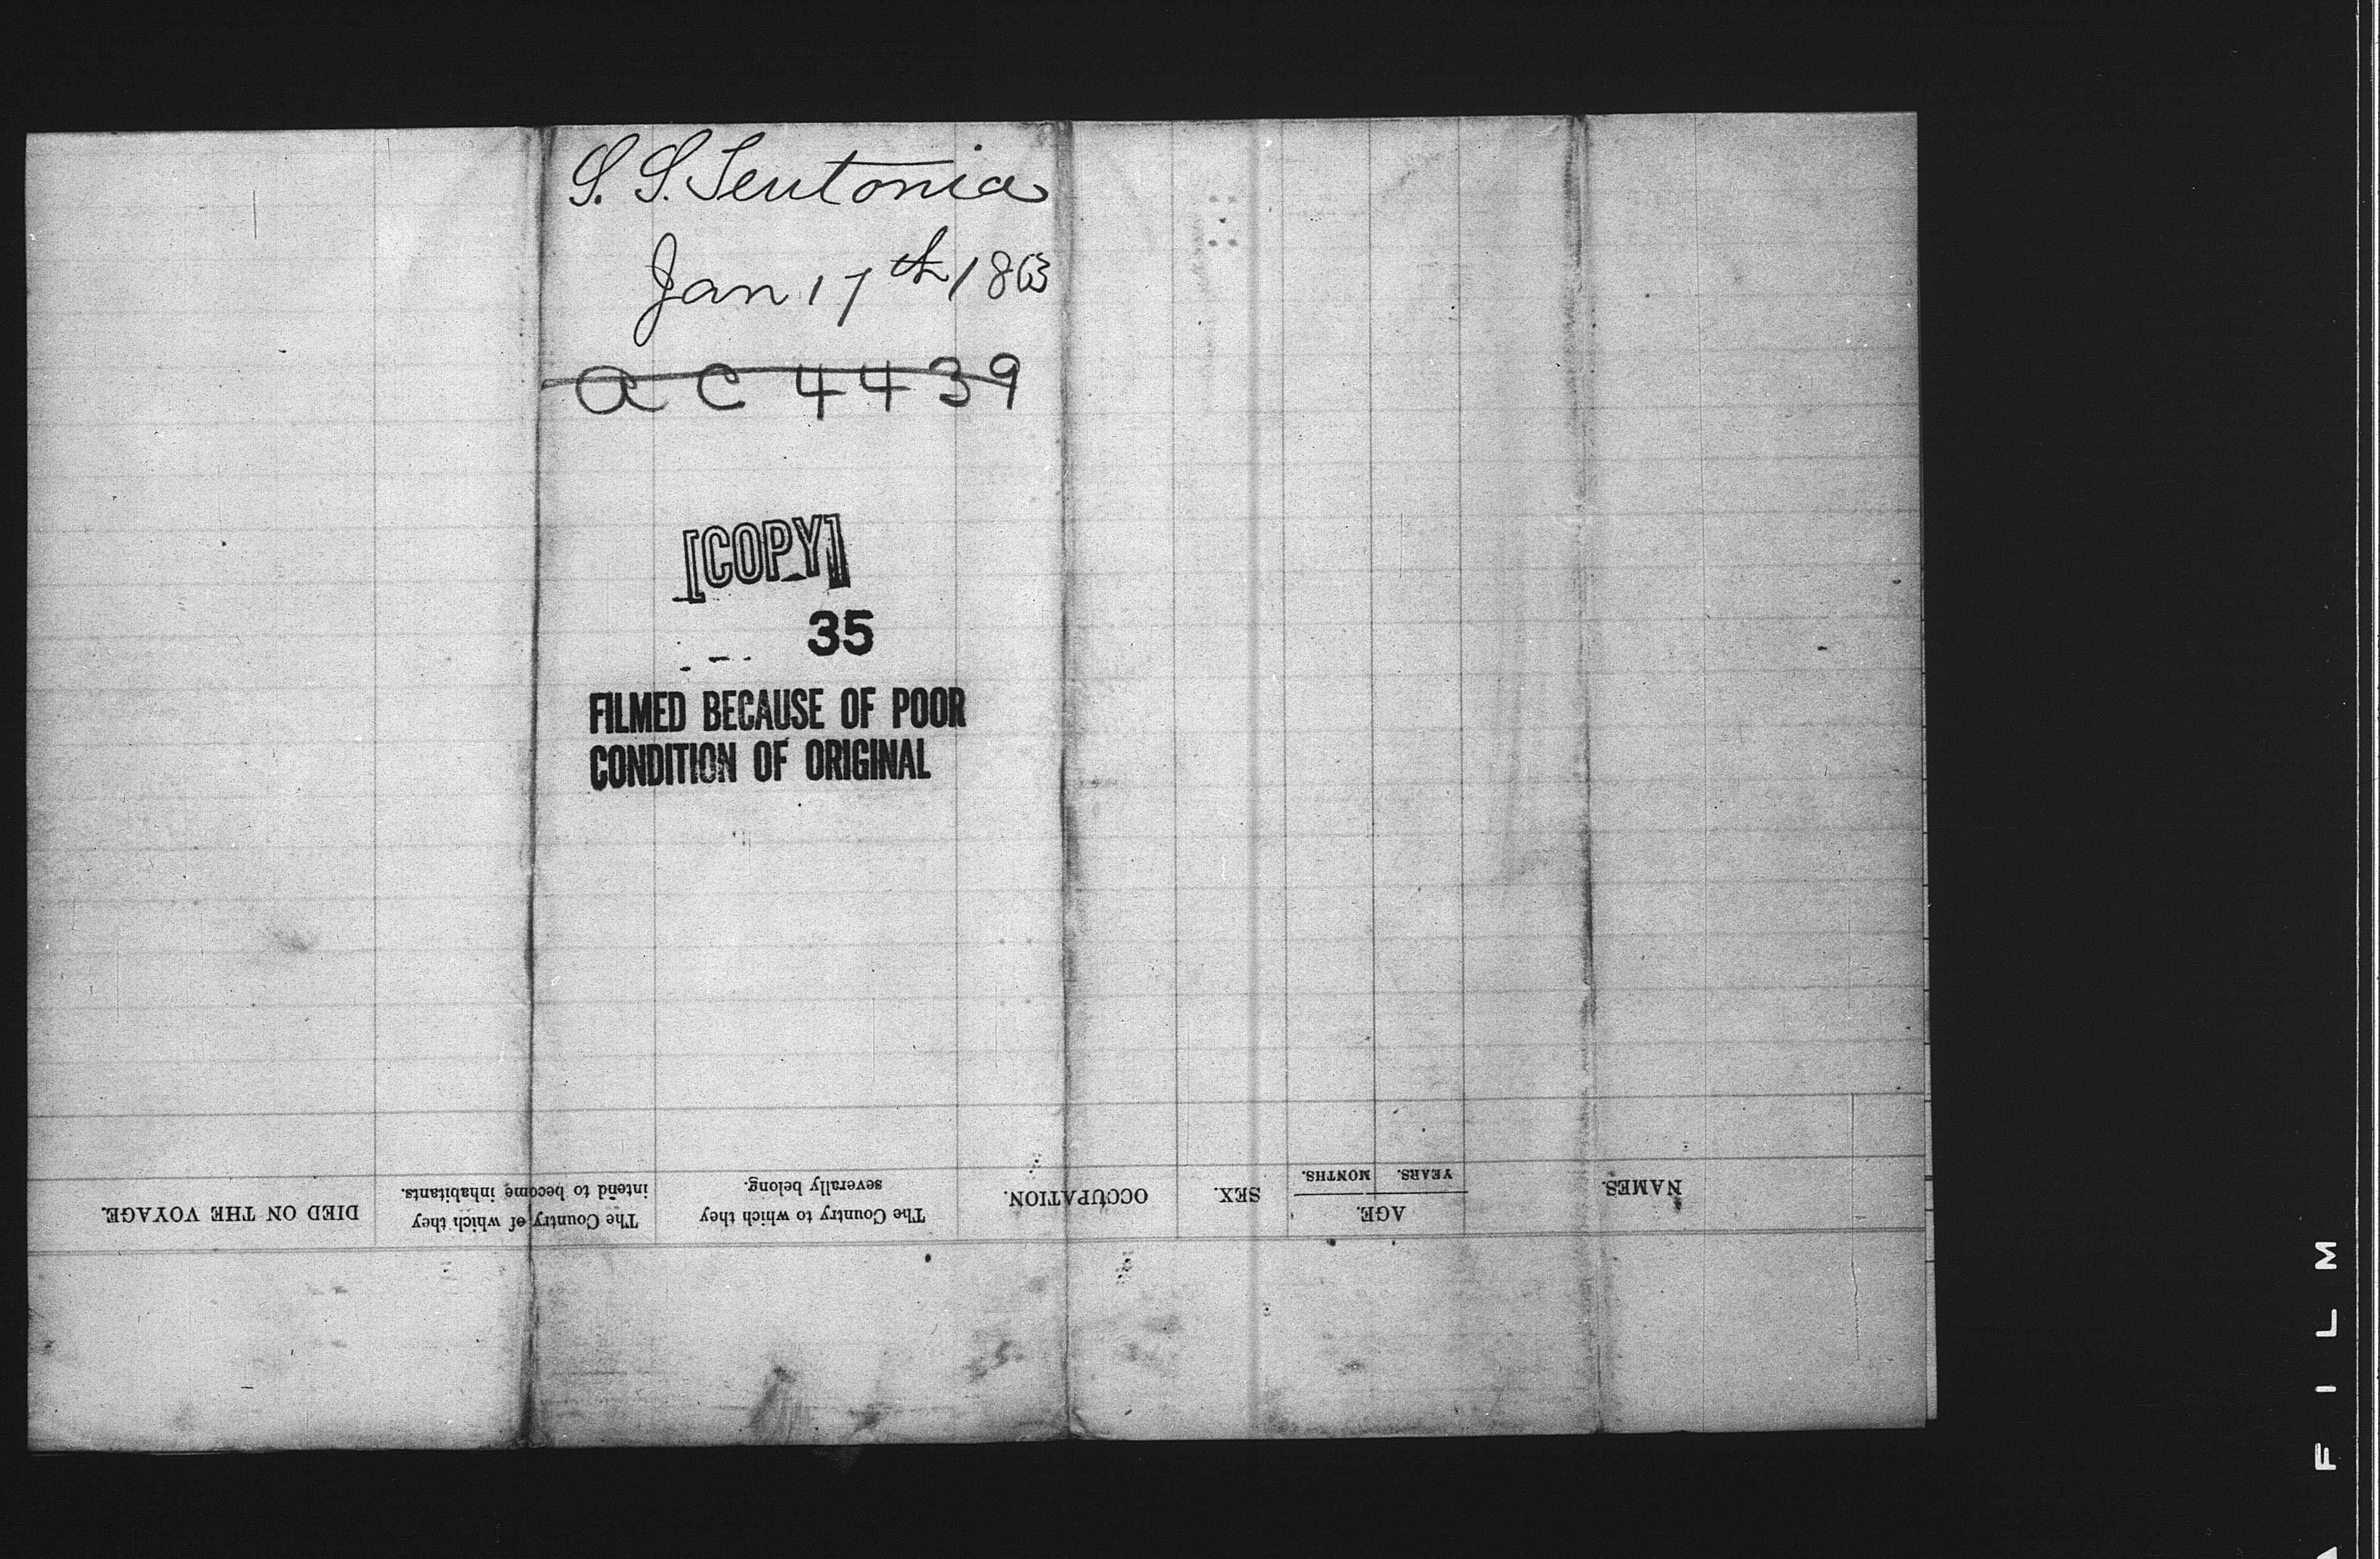 S. S. Teutonia
Jan 17th 1863
a c 4439
[COPY]
35
FILMED BECAUSE OF POOR
CONDITION OF ORIGINAL
NAMES.
AGE.
YEARS.
MONTHS.
SEX.
OCCUPATION.
The Country to which they
severally belong.
The Country of which they
intend to become inhabitants.
DIED ON THE VOYAGE.
A FILM